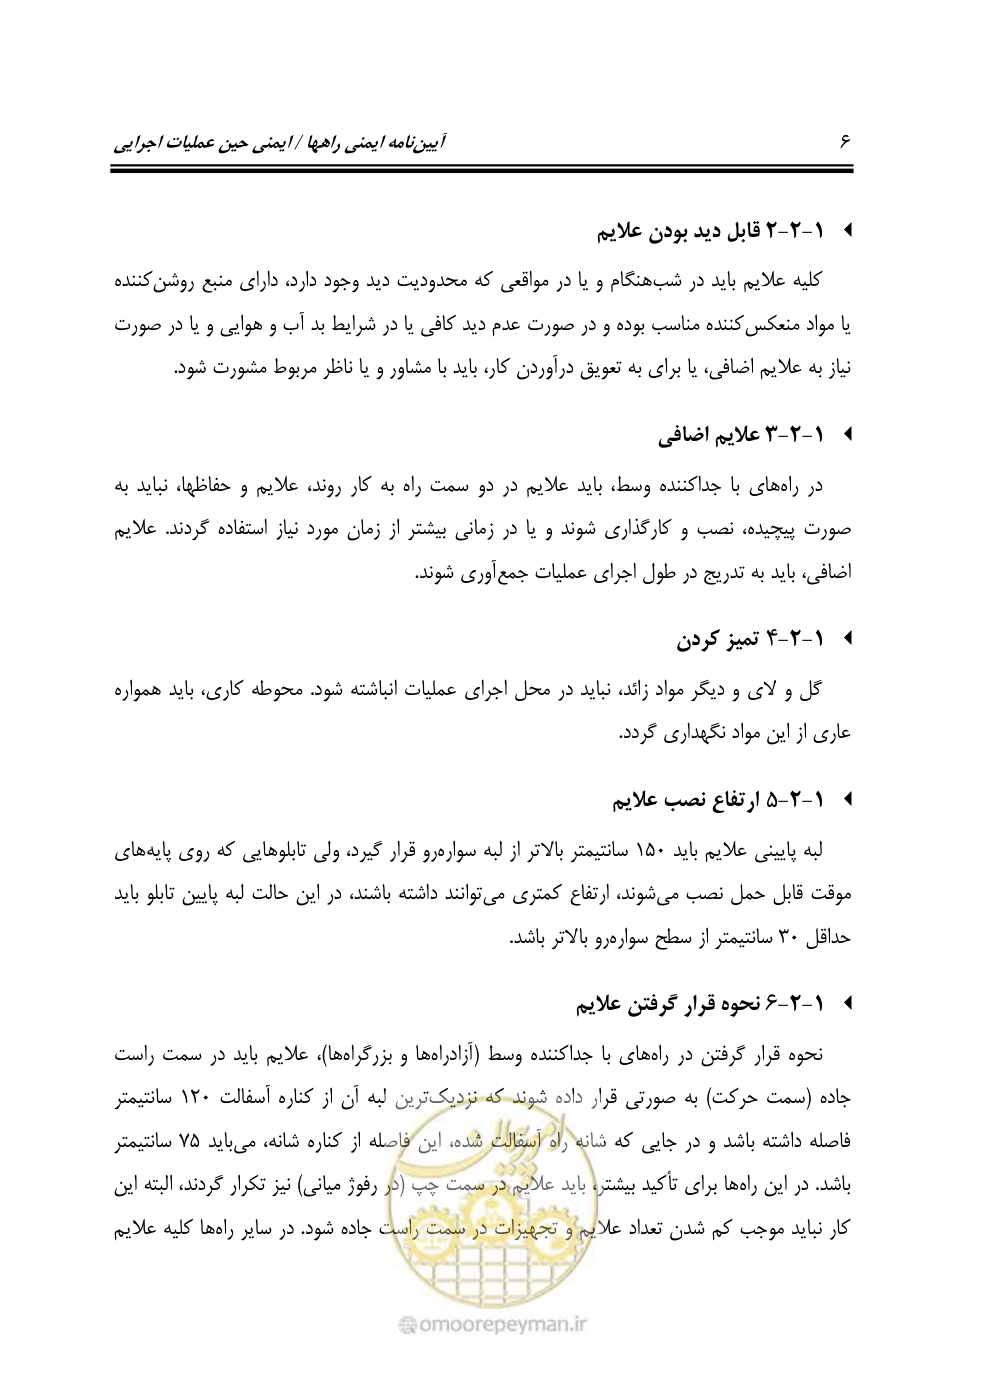 ۶
آیین‌نامه ایمنی راهها / ایمنی حین عملیات اجرایی
۱-۲-۲ قابل دید بودن علایم
کلیه علایم باید در شب‌هنگام و یا در مواقعی که محدودیت دید وجود دارد، دارای منبع روشن‌کننده
یا مواد منعکس‌کننده مناسب بوده و در صورت عدم دید کافی یا در شرایط بد آب و هوایی و یا در صورت
نیاز به علایم اضافی، یا برای به تعویق درآوردن کار، باید با مشاور و یا ناظر مربوط مشورت شود.
۱-۲-۳ علایم اضافی
در راه‌های با جداکننده وسط، باید علایم در دو سمت راه به کار روند، علایم و حفاظها، نباید به
صورت پیچیده، نصب و کارگذاری شوند و یا در زمانی بیشتر از زمان مورد نیاز استفاده گردند. علایم
اضافی، باید به تدریج در طول اجرای عملیات جمع‌آوری شوند.
۱-۲-۴ تمیز کردن
گل و لای و دیگر مواد زائد، نباید در محل اجرای عملیات انباشته شود. محوطه کاری، باید همواره
عاری از این مواد نگهداری گردد.
۱-۲-۵ ارتفاع نصب علایم
لبه پایینی علایم باید ۱۵۰ سانتیمتر بالاتر از لبه سواره‌رو قرار گیرد، ولی تابلوهایی که روی پایه‌های
موقت قابل حمل نصب می‌شوند، ارتفاع کمتری می‌توانند داشته باشند، در این حالت لبه پایین تابلو باید
حداقل ۳۰ سانتیمتر از سطح سواره‌رو بالاتر باشد.
۱-۲-۶ نحوه قرار گرفتن علایم
نحوه قرار گرفتن در راه‌های با جداکننده وسط (آزادراه‌ها و بزرگراه‌ها)، علایم باید در سمت راست
جاده (سمت حرکت) به صورتی قرار داده شوند که نزدیک‌ترین لبه آن از کناره آسفالت ۱۲۰ سانتیمتر
فاصله داشته باشد و در جایی که شانه راه آسفالت شده، این فاصله از کناره شانه، می‌باید ۷۵ سانتیمتر
باشد. در این راه‌ها برای تأکید بیشتر، باید علایم در سمت چپ (در رفوژ میانی) نیز تکرار گردند، البته این
کار نباید موجب کم شدن تعداد علایم و تجهیزات در سمت راست جاده شود. در سایر راه‌ها کلیه علایم
امور پیمان
omoorepeyman.ir